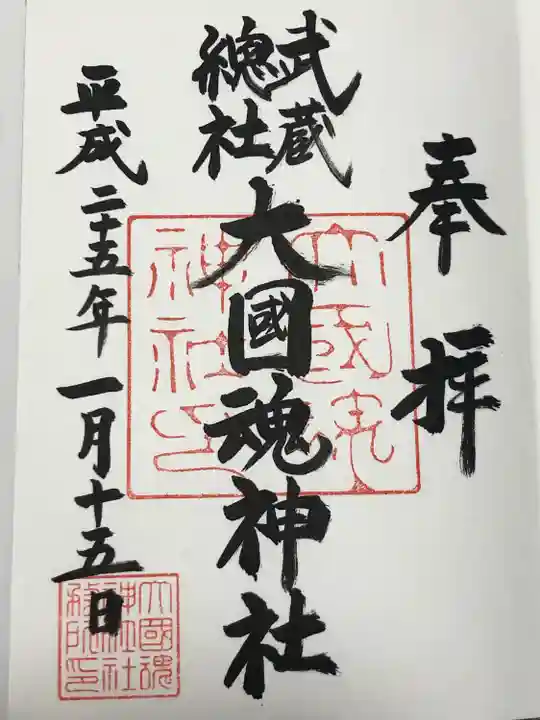 奉拝
武蔵
總社
大國魂神社
平成二十五年一月十五日
大國魂
神社印
大國魂
神社